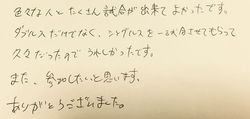 色々な人とたくさん試合が出来てよかったです。
ダブルスだけでなく、シングルスを一試合させてもらって
久々だったのでうれしかったです。
また、参加したいと思います。
ありがとうございました。